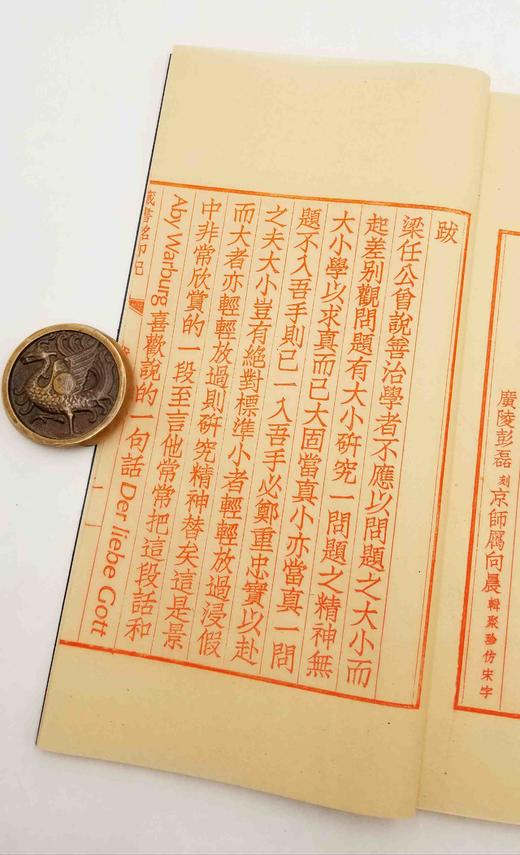 廣陵彭磊刻京師厲向晨輯聚珍仿宋字
跋
梁任公曾說善治學者不應以問題之大小而
起差別觀問題有大小研究一問題之精神無
大小學以求真而已大固當真小亦當真一問
題不入吾手則已一入吾手必鄭重忠實以赴
之夫大小豈有絕對標準小者輕輕放過浸假
而大者亦輕輕放過則研究精神替矣這是景
中非常欣賞的一段至言他常常把這段話和
Aby Warburg 喜歡說的一句話 Der liebe Gott
書名印